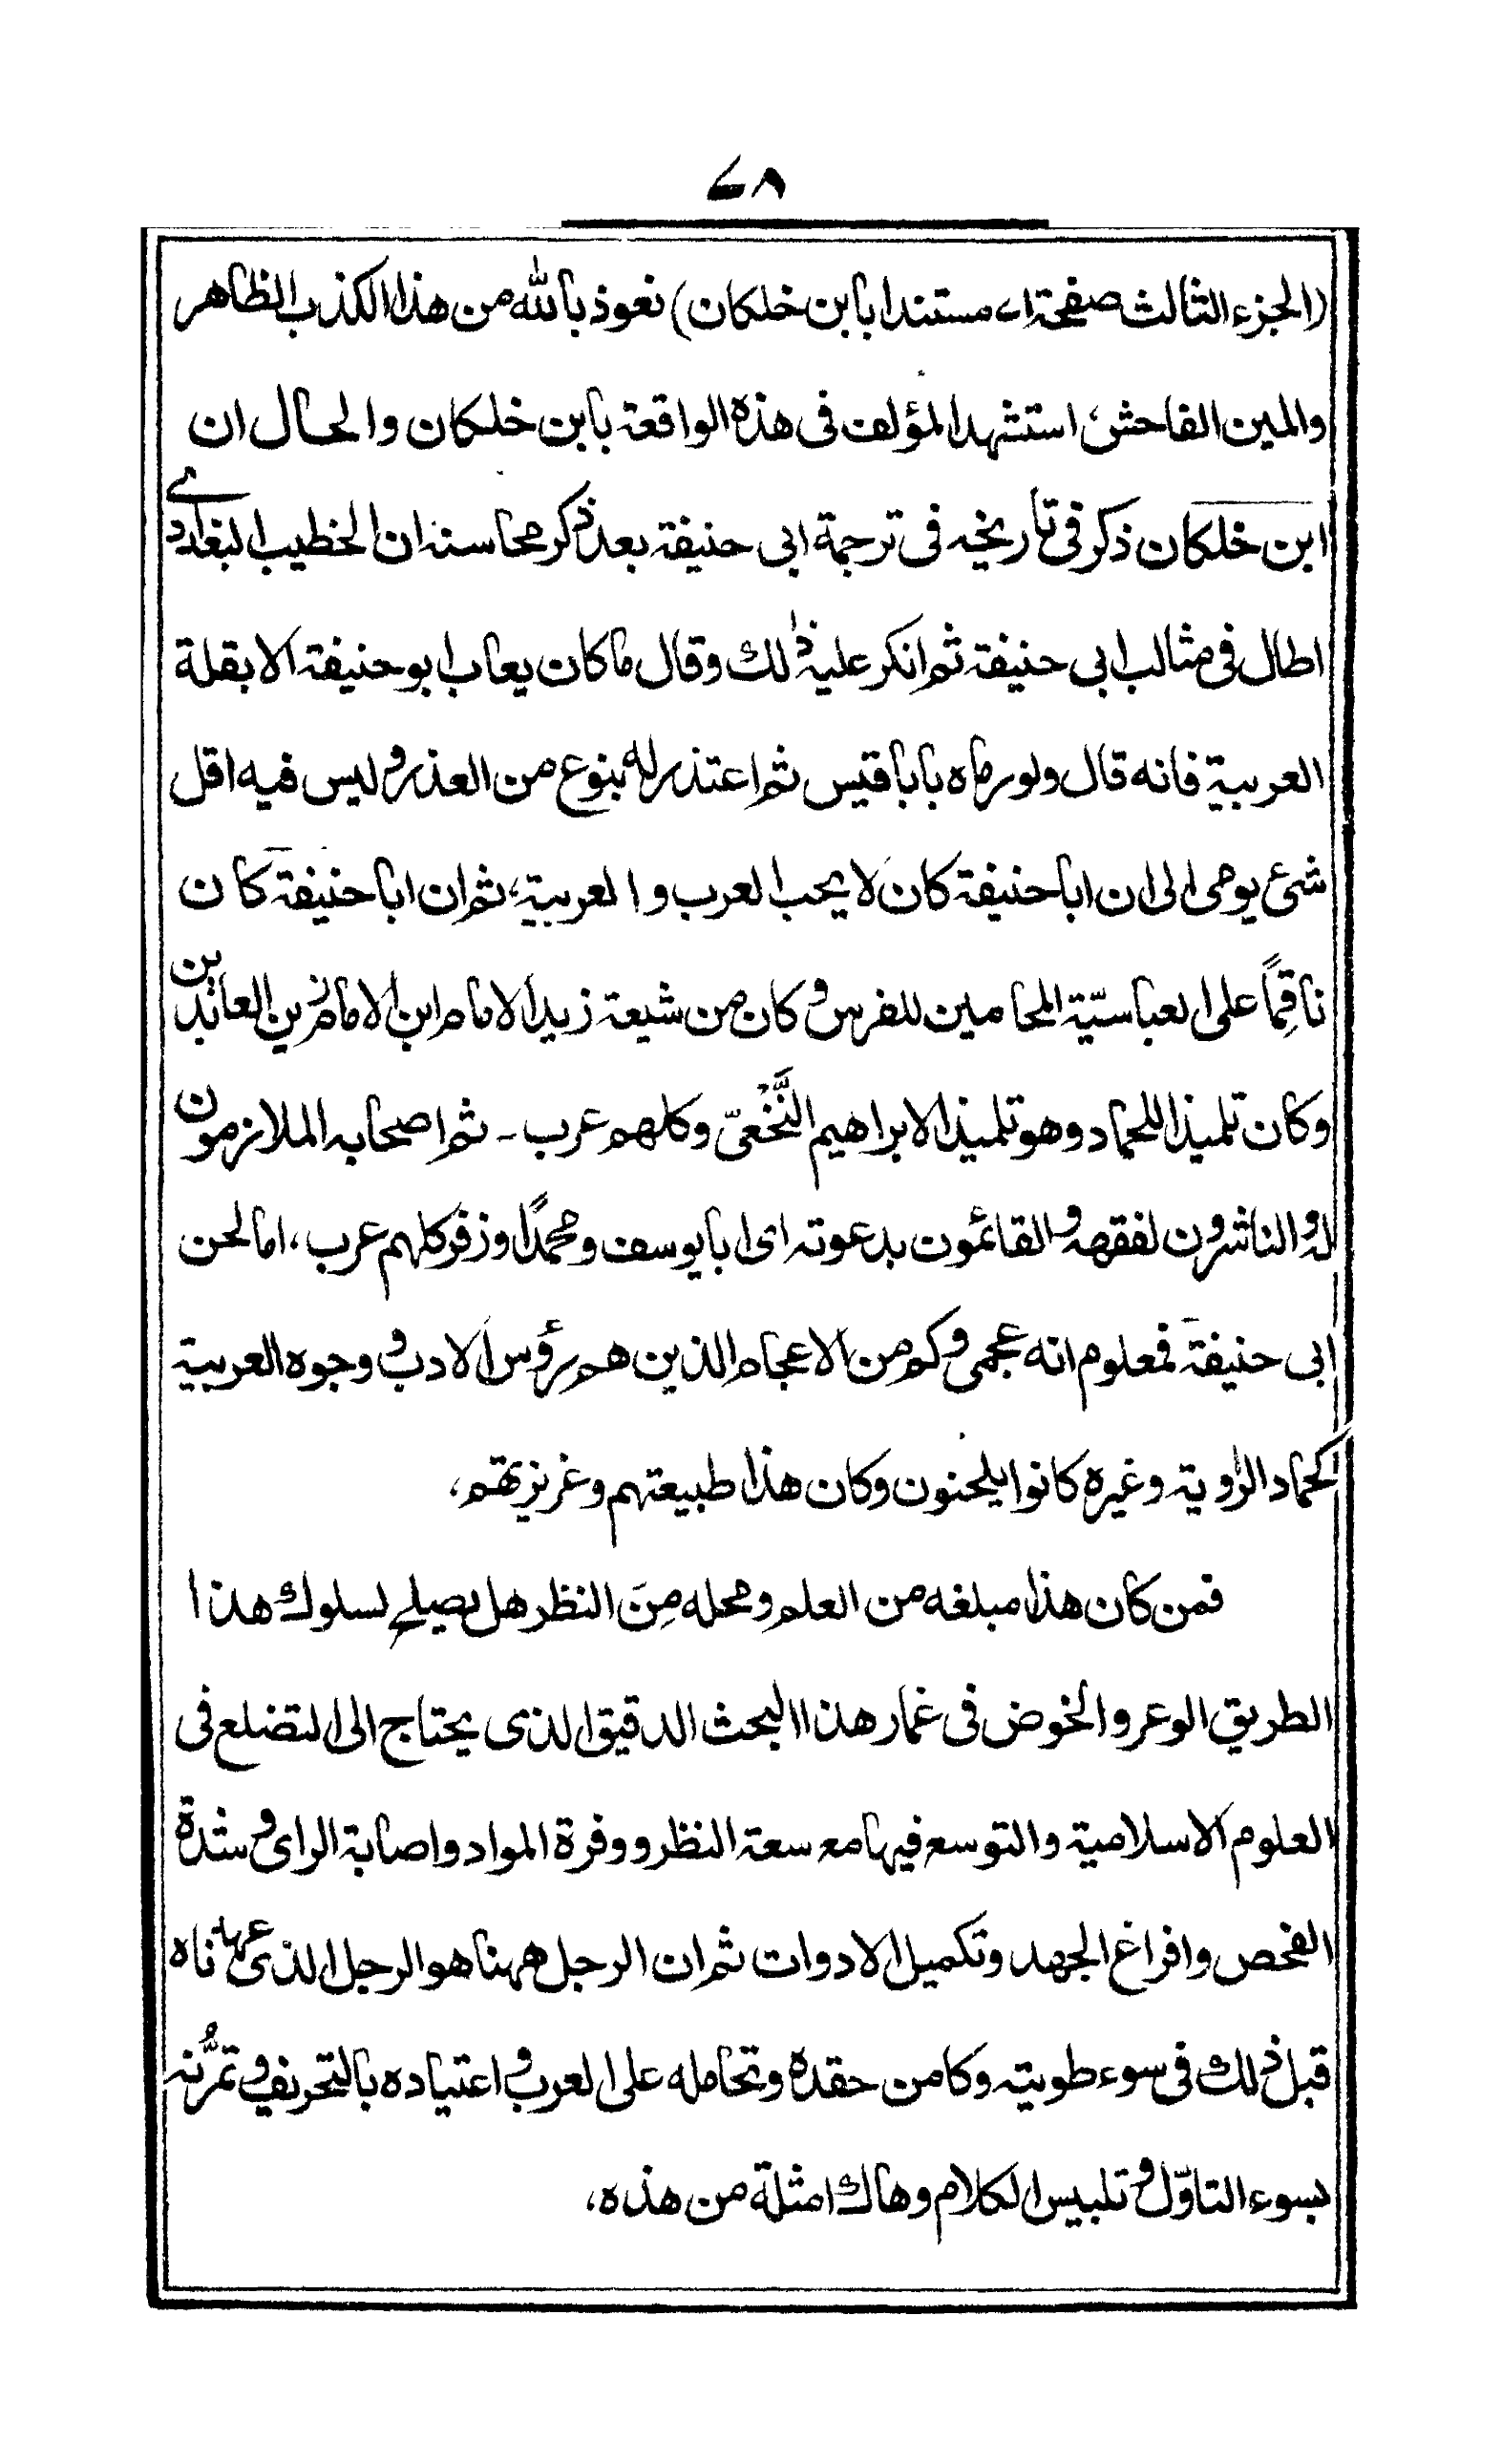 ٦٨
(الجزء الثالث صفحة ٧١ مستندا بابن خلكان) نعوذ بالله من هذا الكذب الظاهر
والمين الفاحش، استشهد المؤلف فى هذه الواقعة بابن خلكان والحال ان
ابن خلكان ذكر فى تاريخه فى ترجمة ابى حنيفة بعد ذكر محاسنه ان الخطيب البغدادے
اطال فى مثالب ابى حنيفة ثم انكر عليه ذٰلك وقال ماكان يعاب ابو حنيفة الا بقلة
العربية فانه قال ولو رماه بابا قيس ثم اعتذر له بنوع من العذر وليس فيه اقل
شئ يومى الى ان ابا حنيفة كان لا يحب العرب والعربية، ثم ان ابا حنيفة كان
ناقِمًا على العباسيّة المحامين للفرس وكان من شيعة زيد الامام ابن الامام زين العابدين
وكان تلميذا للحماد وهو تلميذ لابراهيم النَّخْعىّ وكلهم عرب ـ ثم اصحابه الملازمون
له والناشرون لفقهه والقائمون بدعوته اى ابا يوسف ومحمدًا وزفر كلهم عرب، اما لحن
ابى حنيفة فمعلوم انه عجمى وكم من الاعجام الذين هم رؤس الادب ووجوه العربية
كحماد الراوية وغيره كانوا يلحنون وكان هذا طبيعتهم وغريزتهم،
فمن كان هذا مبلغه من العلم ومحله مِنَ النظر هل يصلح لسلوك هذا
الطريق الوعر والخوض فى غمار هذا البحث الدقيق الذى يحتاج الى التضلع فى
العلوم الاسلامية والتوسع فيها مع سعة النظر ووفرة المواد واصابة الراى وشدة
الفحص وافراغ الجهد وتكميل الادوات ثم ان الرجل ههنا هو الرجل الذى عهدناه
قبل ذلك فى سوء طويته وكامن حقده وتحامله على العرب واعتياده بالتحريف وتمرُّنه
بسوء التاوّل وتلبيس الكلام وهاك امثلة من هذه،